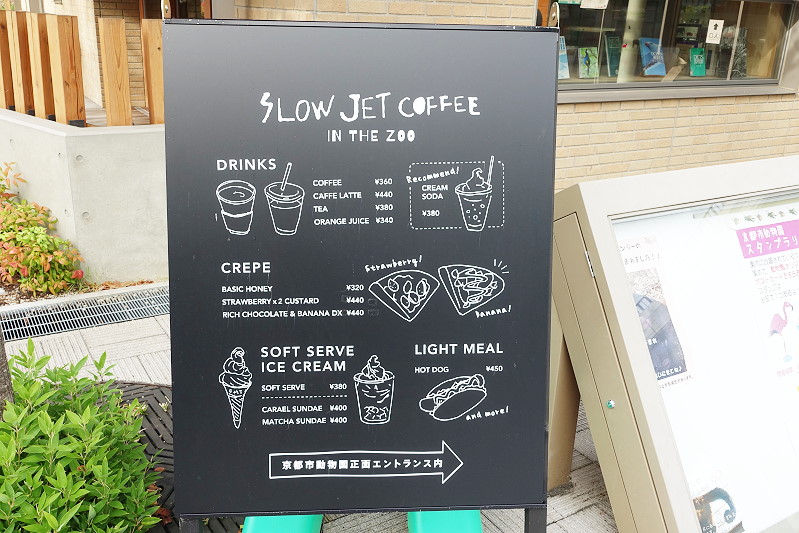 SLOW JET COFFEE
IN THE ZOO
DRINKS
COFFEE ¥360
CAFFE LATTE ¥440
TEA ¥380
ORANGE JUICE ¥340
Recommend!
CREAM
SODA
¥380
CREPE
BASIC HONEY ¥320
STRAWBERRY x 2 CUSTARD ¥440
RICH CHOCOLATE & BANANA DX ¥440
Strawberry!
Banana!
SOFT SERVE
ICE CREAM
SOFT SERVE ¥380
CARAEL SUNDAE ¥400
MATCHA SUNDAE ¥400
LIGHT MEAL
HOT DOG ¥450
and more!
京都市動物園正面エントランス内
京都市動物園
スタンプラリ